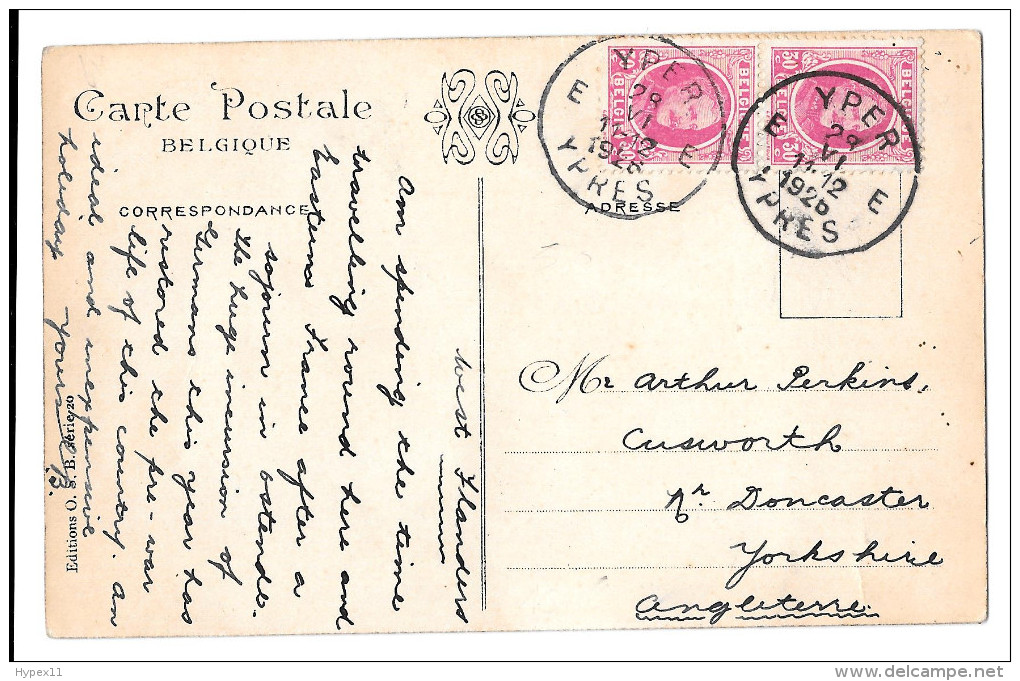 Carte Postale
BELGIQUE
CORRESPONDANCE
ADRESSE
West Flanders
Am spending the time
travelling round here and
Easterns France after a
sojourn in Ostende.
The huge incursion of
Germans this year has
restored the pre-war
life of this country. An
ideal and inexpensive
holiday Yours
Mr Arthur Perkins,
Cusworth
Nr Doncaster
Yorkshire
Angleterre
YPER
E 28 VI E
11.12
1926
YPRES
YPER
E 28 VI E
11.12
1926
YPRES
30 c BELGIE
BELGIQUE 30 c
30 c BELGIE
BELGIQUE 30 c
Editions O. S. B. Série 20
Hypex11
www.delcampe.net